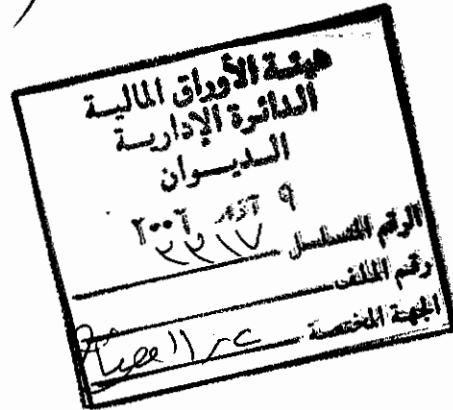 هيئة الأوراق المالية
الدائرة الإدارية
الديوان
٩ آذار ٢٠٠٦
الرقم المتسلسل ٢٢١٧
رقم الملف
الجهة المختصة